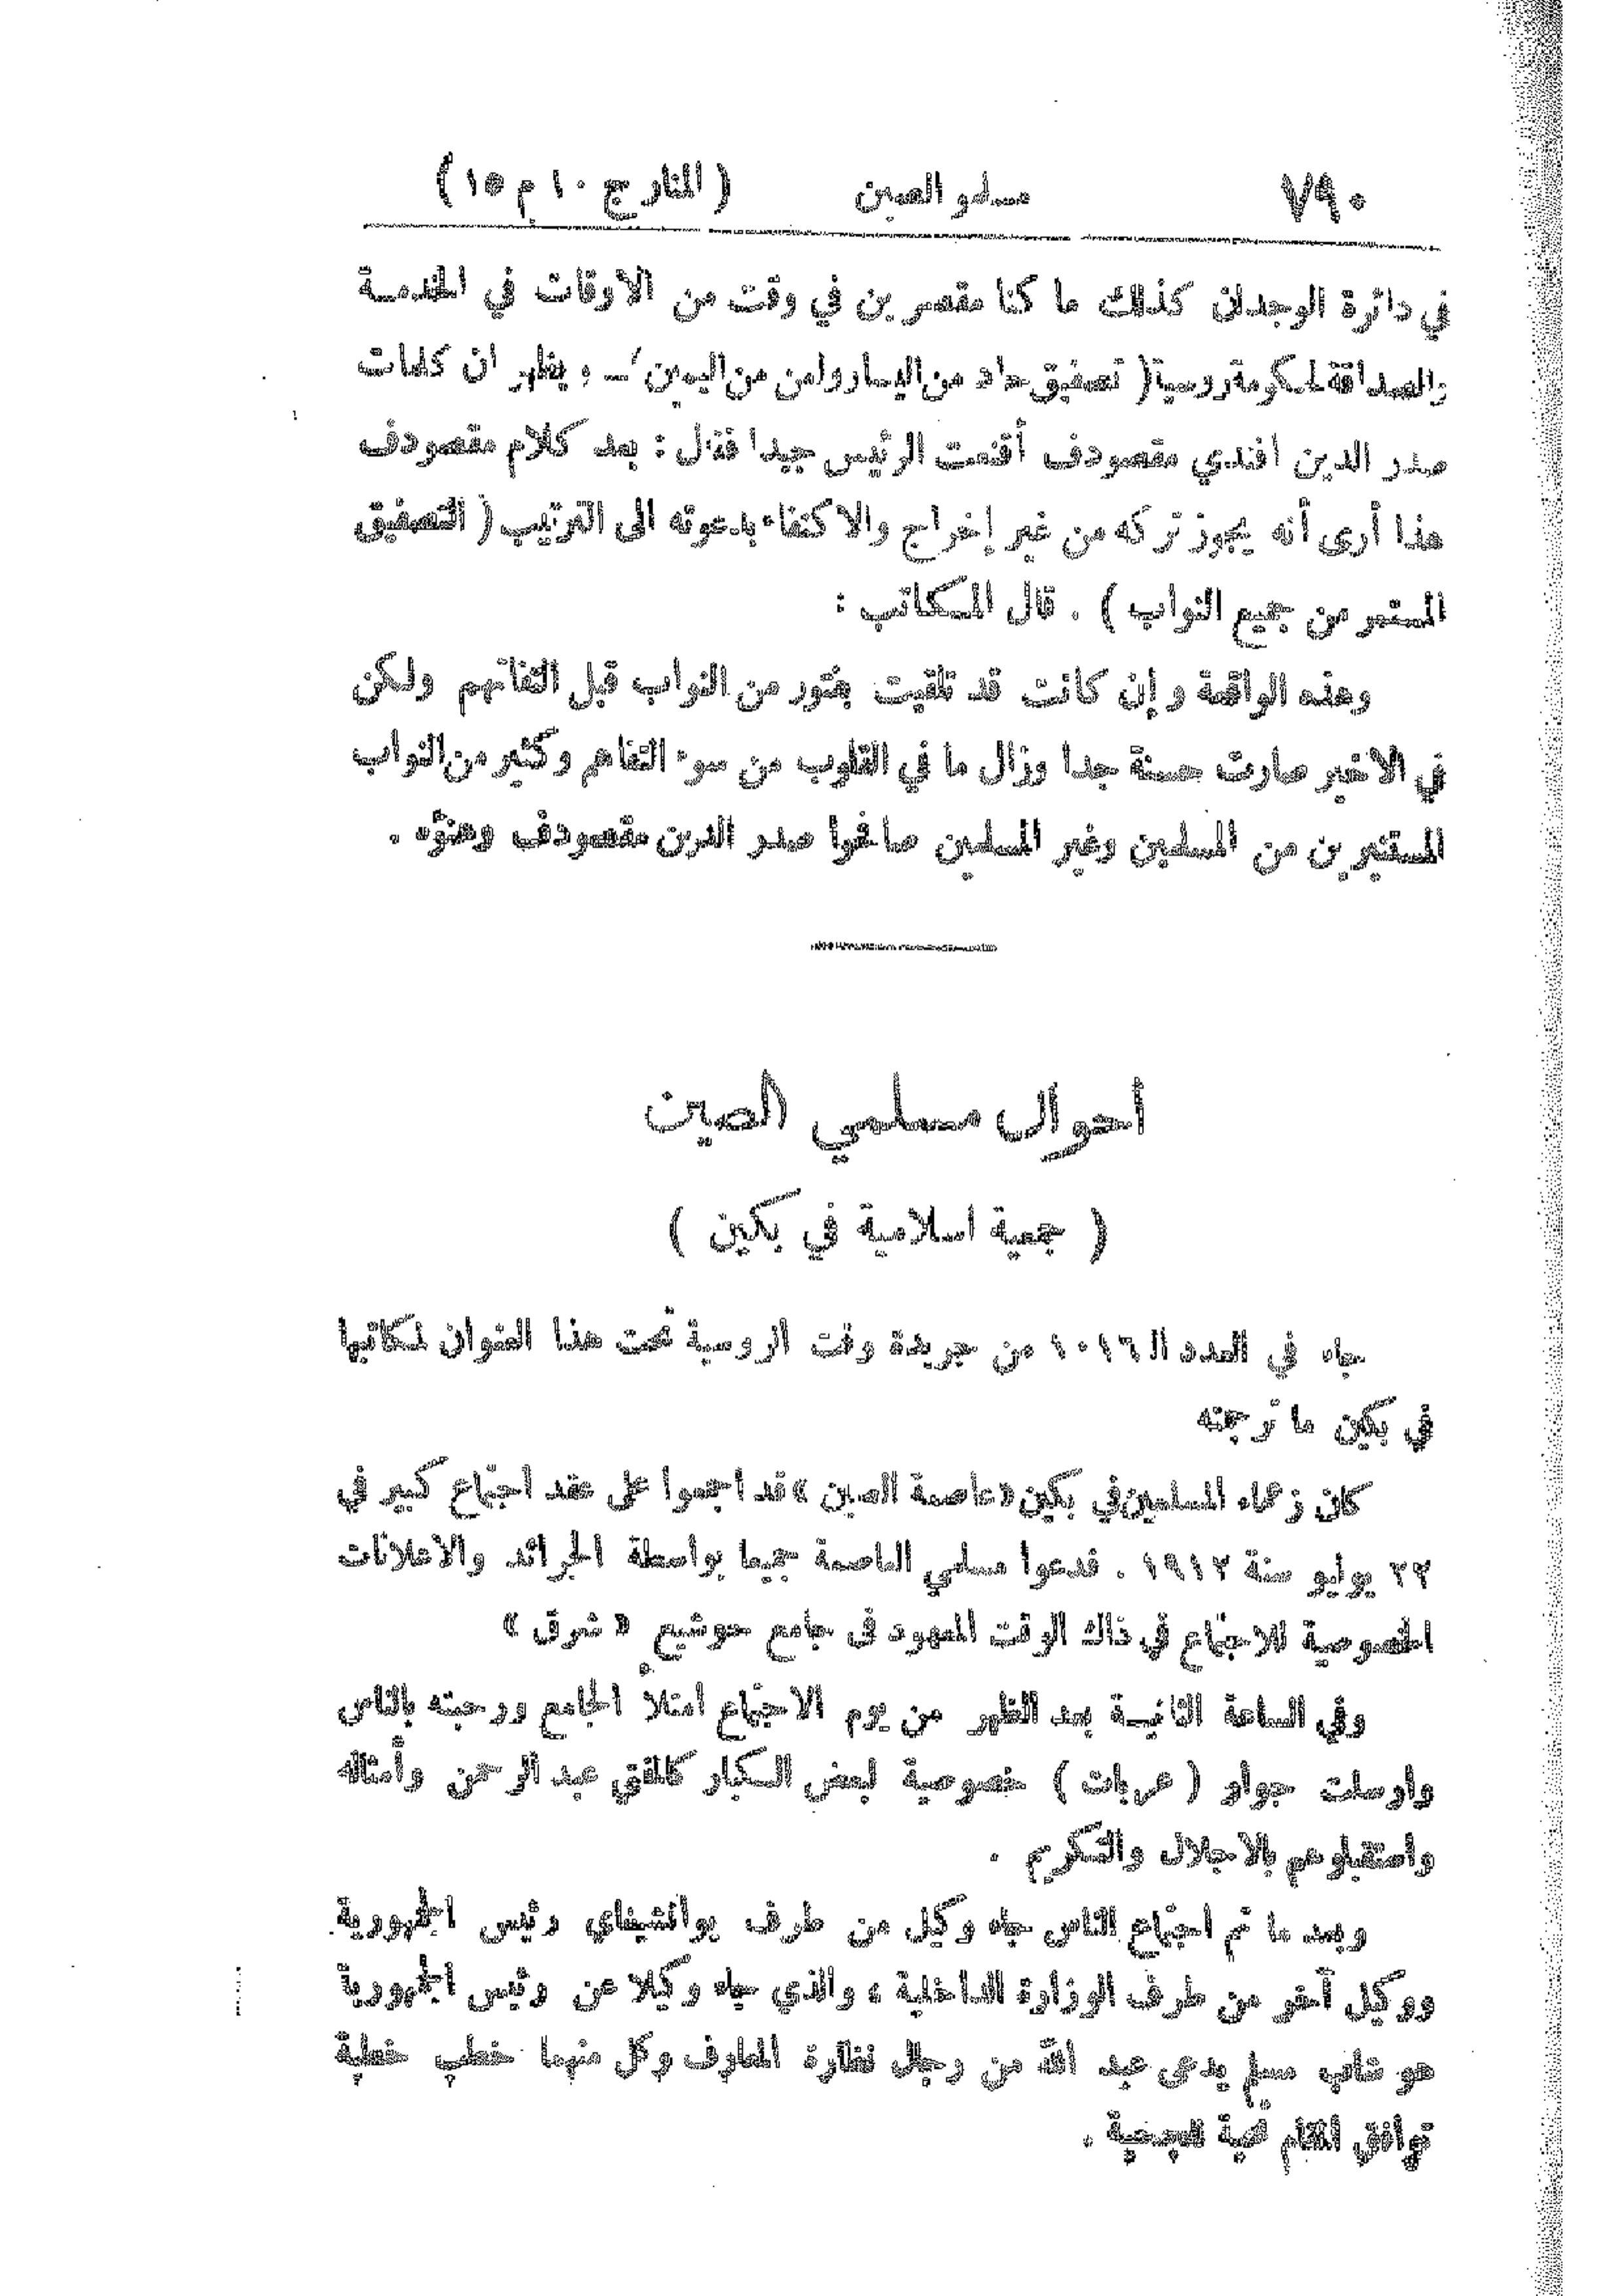 ٧٩٠ مسلمو الصين (المنار ج ١٠ م ١٥)
في دائرة الوجدان كذلك ما كنا مقصرين في وقت من الأوقات في الخدمة
والصداقة لحكومة روسية (تصفيق حاد من اليسار ولمن من اليمين) — ويظهر ان كلمات
صدر الدين افندي مقصودف أقنعت الرئيس جيدا فقال: بعد كلام مقصودف
هذا أرى أنه يجوز تركه من غير إخراج والاكتفاء بدعوته الى الترتيب (التصفيق
المستمر من جميع النواب). قال المكاتب:
وهذه الواقعة وإن كانت قد تلقيت بفتور من النواب قبل التفاتهم ولكن
في الاخير صارت حسنة جدا وزال ما في القلوب من سوء التفاهم وكثير من النواب
المستنيرين من المسلمين وغير المسلمين صافحوا صدر الدين مقصودف وهنؤه .
أحوال مسلمي الصين
(جمعية اسلامية في بكين)
جاء في العدد الـ ١٠١٦ من جريدة وقت الروسية تحت هذا العنوان لمكاتبها
في بكين ما ترجمته
كان زعماء المسلمين في بكين «عاصمة الصين» قد اجمعوا على عقد اجتماع كبير في
٢٢ يوليو سنة ١٩١٢ . فدعوا مسلمي العاصمة جميعا بواسطة الجرائد والاعلانات
الخصوصية للاجتماع في ذاك الوقت المعهود في جامع حوشيع «شرق»
وفي الساعة الثانية بعد الظهر من يوم الاجتماع امتلأ الجامع ورحبته بالناس
وارسلت جواو (عربات) خصوصية لبعض الكبار كالمفتي عبد الرحمن وأمثاله
واستقبلوهم بالاجلال والتكريم .
وبعد ما تم اجتماع الناس جاء وكيل من طرف يوانشيقاي رئيس الجمهورية
ووكيل آخر من طرف الوزارة الداخلية ، والذي جاء وكيلا عن رئيس الجمهورية
هو شاب مسلم يدعى عبد الله من رجال نظارة المعارف وكل منهما خطب خطبة
توافق المقام تحية للجمعية .